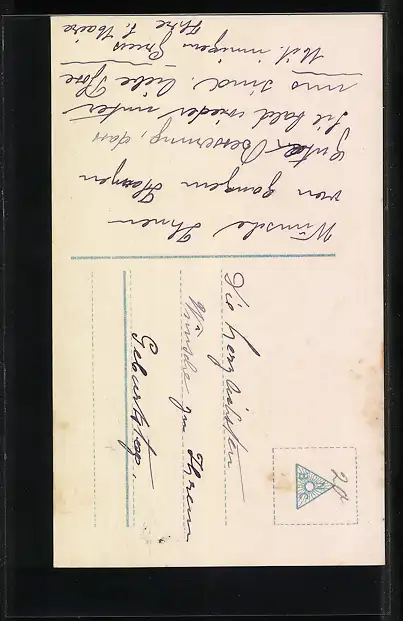 Wünsche Ihnen
von ganzem Herzen
gute Besserung, dass
Sie bald wieder unter
uns sind. Liebe
Mit innigem Gruss
Ihre
Die herzlichsten
Wünsche zu Ihrem
Geburtstage.